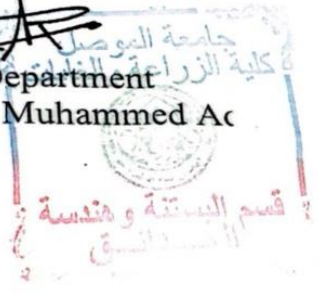 جامعة الموصل
كلية الزراعة والغابات
epartment
Muhammed Ac
قسم البستنة وهندسة
الحدائق